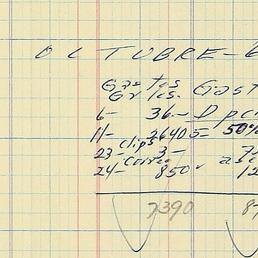 OCTUBRE-6
Gastos Gast
Grles.
6- 36- Dpc
11- 26405- 50%
Clips
23- 3- 7
Correo
24- 850 12
7390 8